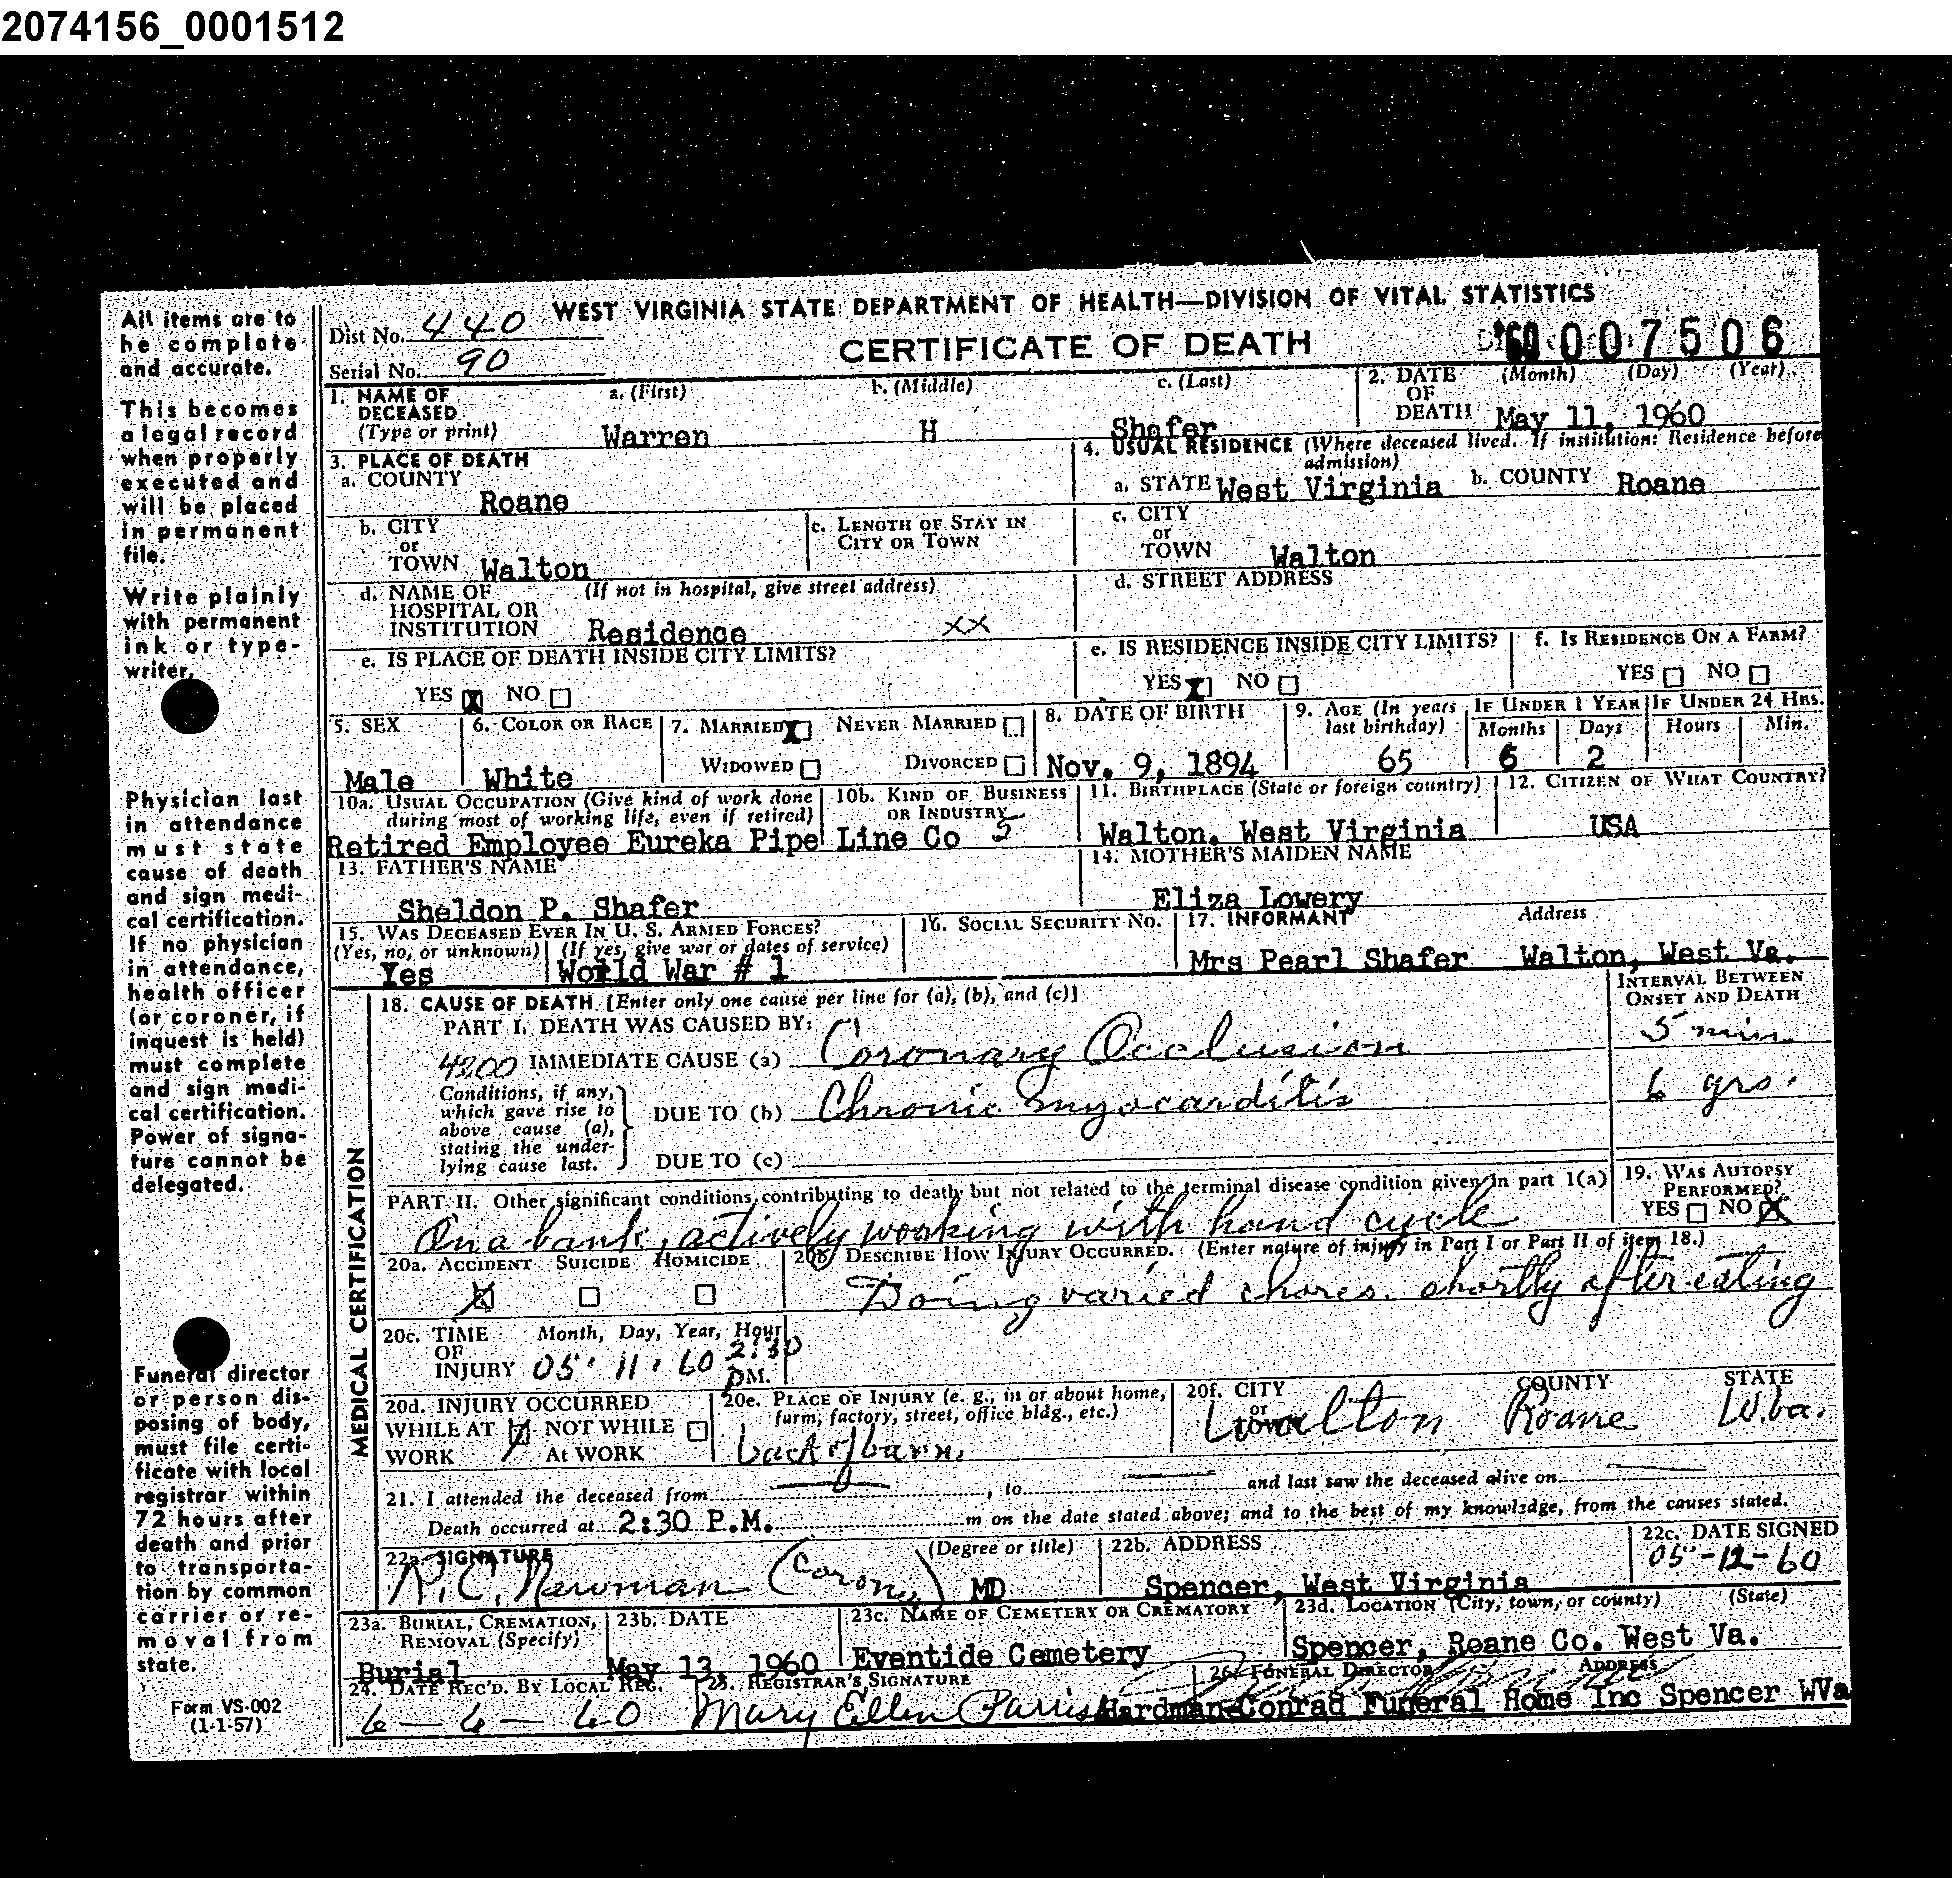 2074156_0001512
All items are to
be complete
and accurate.
This becomes
a legal record
when properly
executed and
will be placed
in permanent
file.
Write plainly
with permanent
ink or type-
writer.
Physician last
in attendance
must state
cause of death
and sign medi-
cal certification.
If no physician
in attendance,
health officer
(or coroner, if
inquest is held)
must complete
and sign medi-
cal certification.
Power of signa-
ture cannot be
delegated.
Funeral director
or person dis-
posing of body,
must file certi-
ficate with local
registrar within
72 hours after
death and prior
to transporta-
tion by common
carrier or re-
moval from
state.
Form VS-002
(1-1-57)
WEST VIRGINIA STATE DEPARTMENT OF HEALTH—DIVISION OF VITAL STATISTICS
Dist No. 440
CERTIFICATE OF DEATH 60 007506
Serial No. 90
1. NAME OF DECEASED (Type or print) a. (First) b. (Middle) c. (Last) 2. DATE OF DEATH (Month) (Day) (Year)
Warren H Shafer May 11, 1960
3. PLACE OF DEATH 4. USUAL RESIDENCE (Where deceased lived. If institution: Residence before admission)
a. COUNTY Roane a. STATE West Virginia b. COUNTY Roane
b. CITY or TOWN Walton c. LENGTH OF STAY IN CITY OR TOWN c. CITY or TOWN Walton
d. NAME OF HOSPITAL OR INSTITUTION (If not in hospital, give street address) Residence XX d. STREET ADDRESS
e. IS PLACE OF DEATH INSIDE CITY LIMITS? e. IS RESIDENCE INSIDE CITY LIMITS? f. IS RESIDENCE ON A FARM?
YES X NO YES X NO YES NO
5. SEX 6. COLOR OR RACE 7. MARRIED X NEVER MARRIED 8. DATE OF BIRTH 9. AGE (In years last birthday) IF UNDER 1 YEAR IF UNDER 24 HRS.
Months Days Hours Min.
WIDOWED DIVORCED
Male White Nov. 9, 1894 65 6 2
10a. USUAL OCCUPATION (Give kind of work done during most of working life, even if retired) 10b. KIND OF BUSINESS OR INDUSTRY 11. BIRTHPLACE (State or foreign country) 12. CITIZEN OF WHAT COUNTRY?
Retired Employee Eureka Pipe Line Co 5 Walton, West Virginia USA
13. FATHER'S NAME 14. MOTHER'S MAIDEN NAME
Sheldon P. Shafer Eliza Lowery
15. WAS DECEASED EVER IN U. S. ARMED FORCES? 16. SOCIAL SECURITY NO. 17. INFORMANT Address
(Yes, no, or unknown) (If yes, give war or dates of service)
Yes World War # 1 Mrs Pearl Shafer Walton, West Va.
MEDICAL CERTIFICATION
18. CAUSE OF DEATH [Enter only one cause per line for (a), (b), and (c)] INTERVAL BETWEEN ONSET AND DEATH
PART I. DEATH WAS CAUSED BY:
4200 IMMEDIATE CAUSE (a) Coronary Occlusion 5 min
Conditions, if any, which gave rise to above cause (a), stating the underlying cause last.
DUE TO (b) Chronic myocarditis 6 yrs.
DUE TO (c)
PART II. Other significant conditions contributing to death but not related to the terminal disease condition given in part 1(a) 19. WAS AUTOPSY PERFORMED?
YES NO X
On a bank, actively working with hand cycle
20a. ACCIDENT SUICIDE HOMICIDE 20b. DESCRIBE HOW INJURY OCCURRED. (Enter nature of injury in Part I or Part II of item 18.)
X Doing varied chores. shortly after eating
20c. TIME OF INJURY Month, Day, Year, Hour
05 · 11 · 60 2:30 PM.
20d. INJURY OCCURRED 20e. PLACE OF INJURY (e. g., in or about home, farm, factory, street, office bldg., etc.) 20f. CITY or TOWN COUNTY STATE
WHILE AT WORK X NOT WHILE At WORK back of barn. Walton Roane W.Va.
21. I attended the deceased from — , to — and last saw the deceased alive on —
Death occurred at 2:30 P.M. m on the date stated above; and to the best of my knowledge, from the causes stated.
22a. SIGNATURE (Degree or title) 22b. ADDRESS 22c. DATE SIGNED
R. C. Newman MD Spencer, West Virginia 05-12-60
23a. BURIAL, CREMATION, REMOVAL (Specify) 23b. DATE 23c. NAME OF CEMETERY OR CREMATORY 23d. LOCATION (City, town, or county) (State)
Burial May 13, 1960 Eventide Cemetery Spencer, Roane Co. West Va.
24. DATE REC'D. BY LOCAL REG. 25. REGISTRAR'S SIGNATURE 26. FUNERAL DIRECTOR ADDRESS
6-6-60 Mary Ellen Parrish Hardman-Conrad Funeral Home Inc Spencer WVa